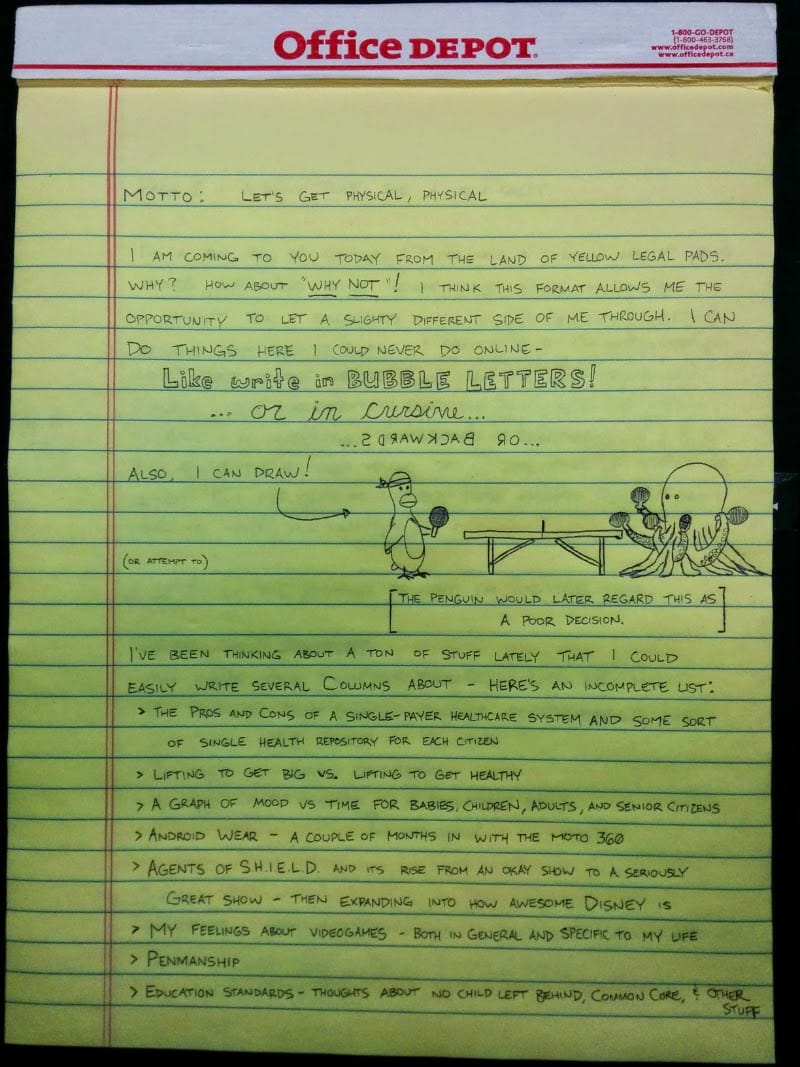 Office DEPOT.
1-800-GO-DEPOT
(1-800-463-3768)
www.officedepot.com
www.officedepot.ca
MOTTO: LET'S GET PHYSICAL, PHYSICAL
I AM COMING TO YOU TODAY FROM THE LAND OF YELLOW LEGAL PADS.
WHY? HOW ABOUT "WHY NOT"! I THINK THIS FORMAT ALLOWS ME THE
OPPORTUNITY TO LET A SLIGHTY DIFFERENT SIDE OF ME THROUGH. I CAN
DO THINGS HERE I COULD NEVER DO ONLINE -
Like write in BUBBLE LETTERS!
... or in cursive...
...OR BACKWARDS...
ALSO, I CAN DRAW!
(OR ATTEMPT TO)
[THE PENGUIN WOULD LATER REGARD THIS AS
A POOR DECISION.]
I'VE BEEN THINKING ABOUT A TON OF STUFF LATELY THAT I COULD
EASILY WRITE SEVERAL COLUMNS ABOUT - HERE'S AN INCOMPLETE LIST:
> THE PROS AND CONS OF A SINGLE-PAYER HEALTHCARE SYSTEM AND SOME SORT
OF SINGLE HEALTH REPOSITORY FOR EACH CITIZEN
> LIFTING TO GET BIG VS. LIFTING TO GET HEALTHY
> A GRAPH OF MOOD VS TIME FOR BABIES, CHILDREN, ADULTS, AND SENIOR CITIZENS
> ANDROID WEAR - A COUPLE OF MONTHS IN WITH THE MOTO 360
> AGENTS OF S.H.I.E.L.D. AND ITS RISE FROM AN OKAY SHOW TO A SERIOUSLY
GREAT SHOW - THEN EXPANDING INTO HOW AWESOME DISNEY IS
> MY FEELINGS ABOUT VIDEOGAMES - BOTH IN GENERAL AND SPECIFIC TO MY LIFE
> PENMANSHIP
> EDUCATION STANDARDS - THOUGHTS ABOUT NO CHILD LEFT BEHIND, COMMON CORE, & OTHER
STUFF